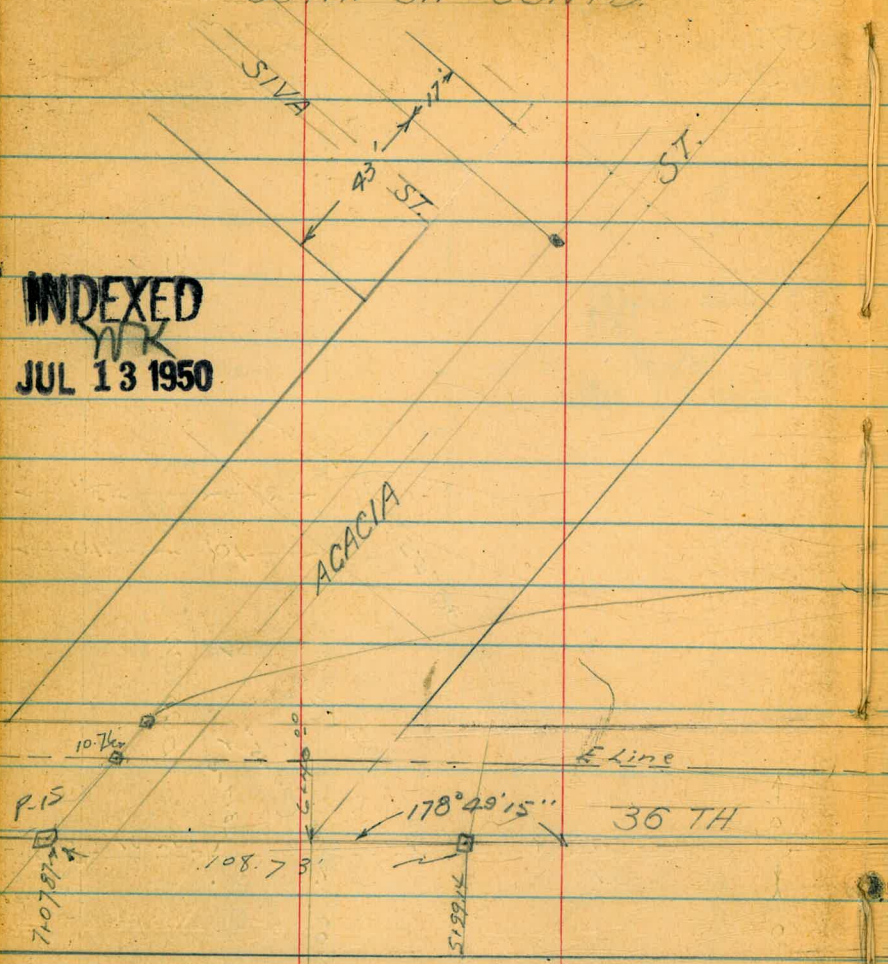 SIVA
17'
43'
ST.
ST.
INDEXED
WK
JUL 13 1950
ACACIA
10.76
E Line
P-15
178°49'15"
36 TH
108.73'
7+07.87
5+99.14